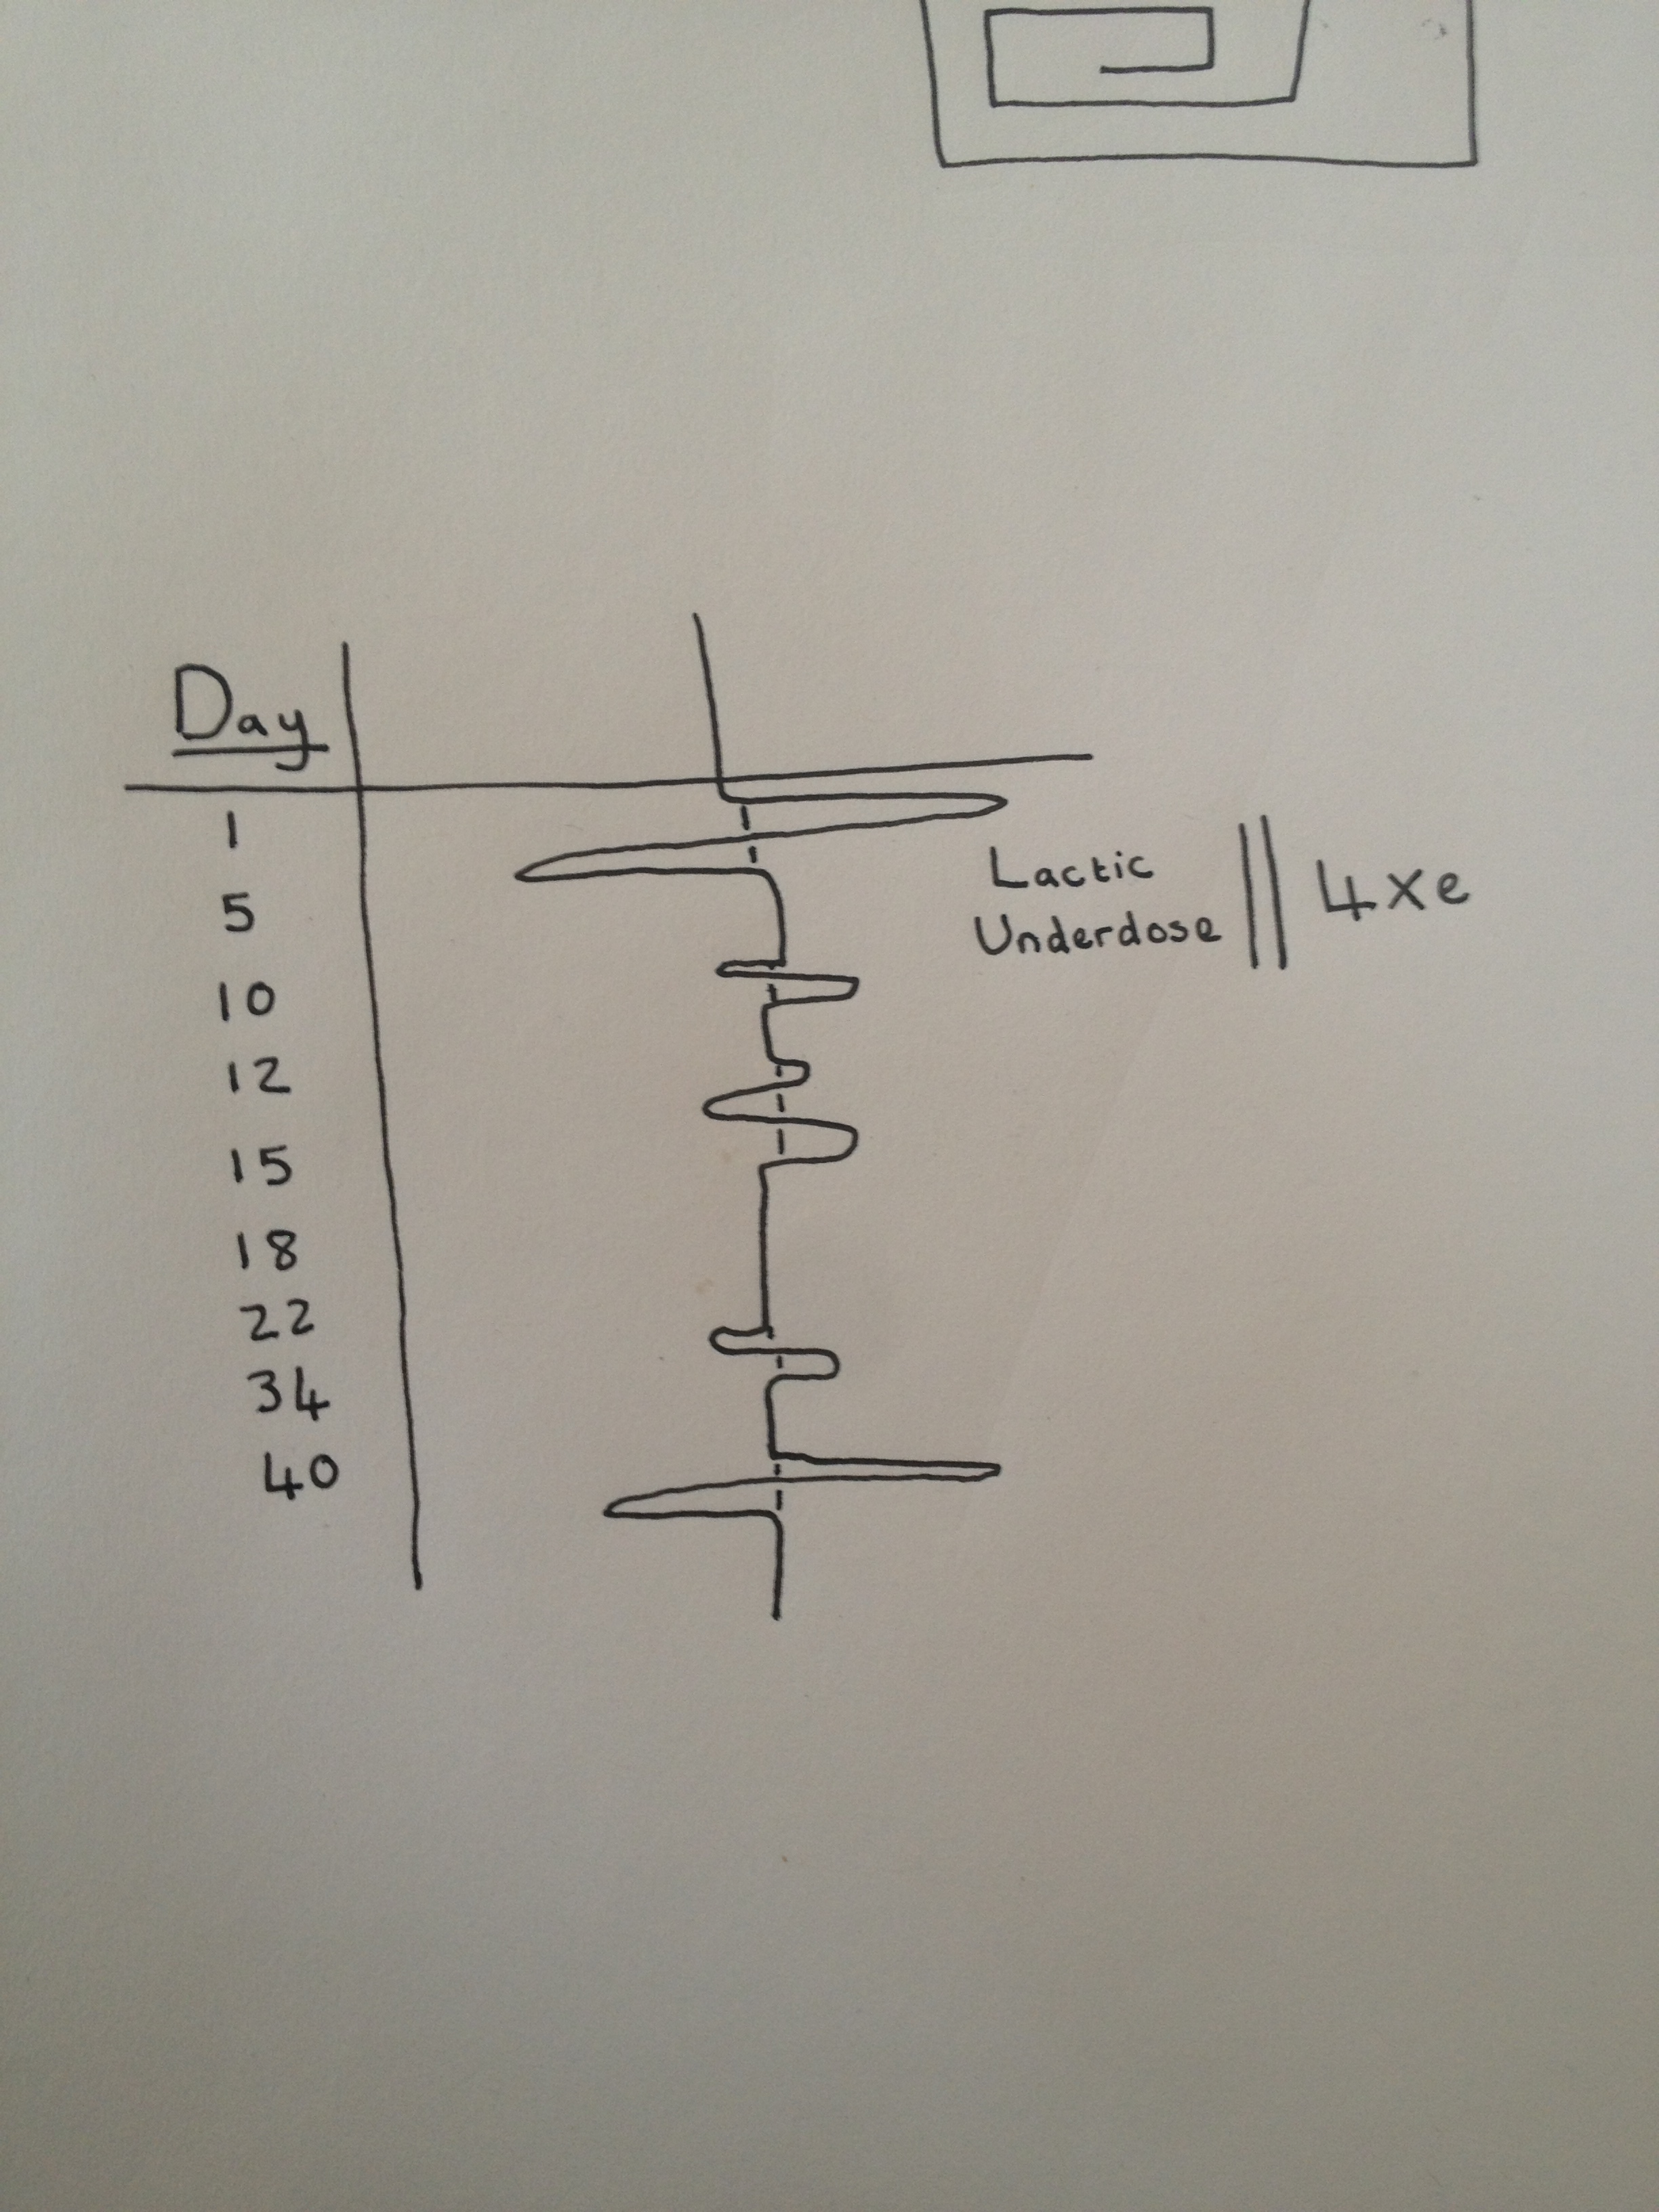 Day
1
5
10
12
15
18
22
34
40
Lactic
Underdose
4xe